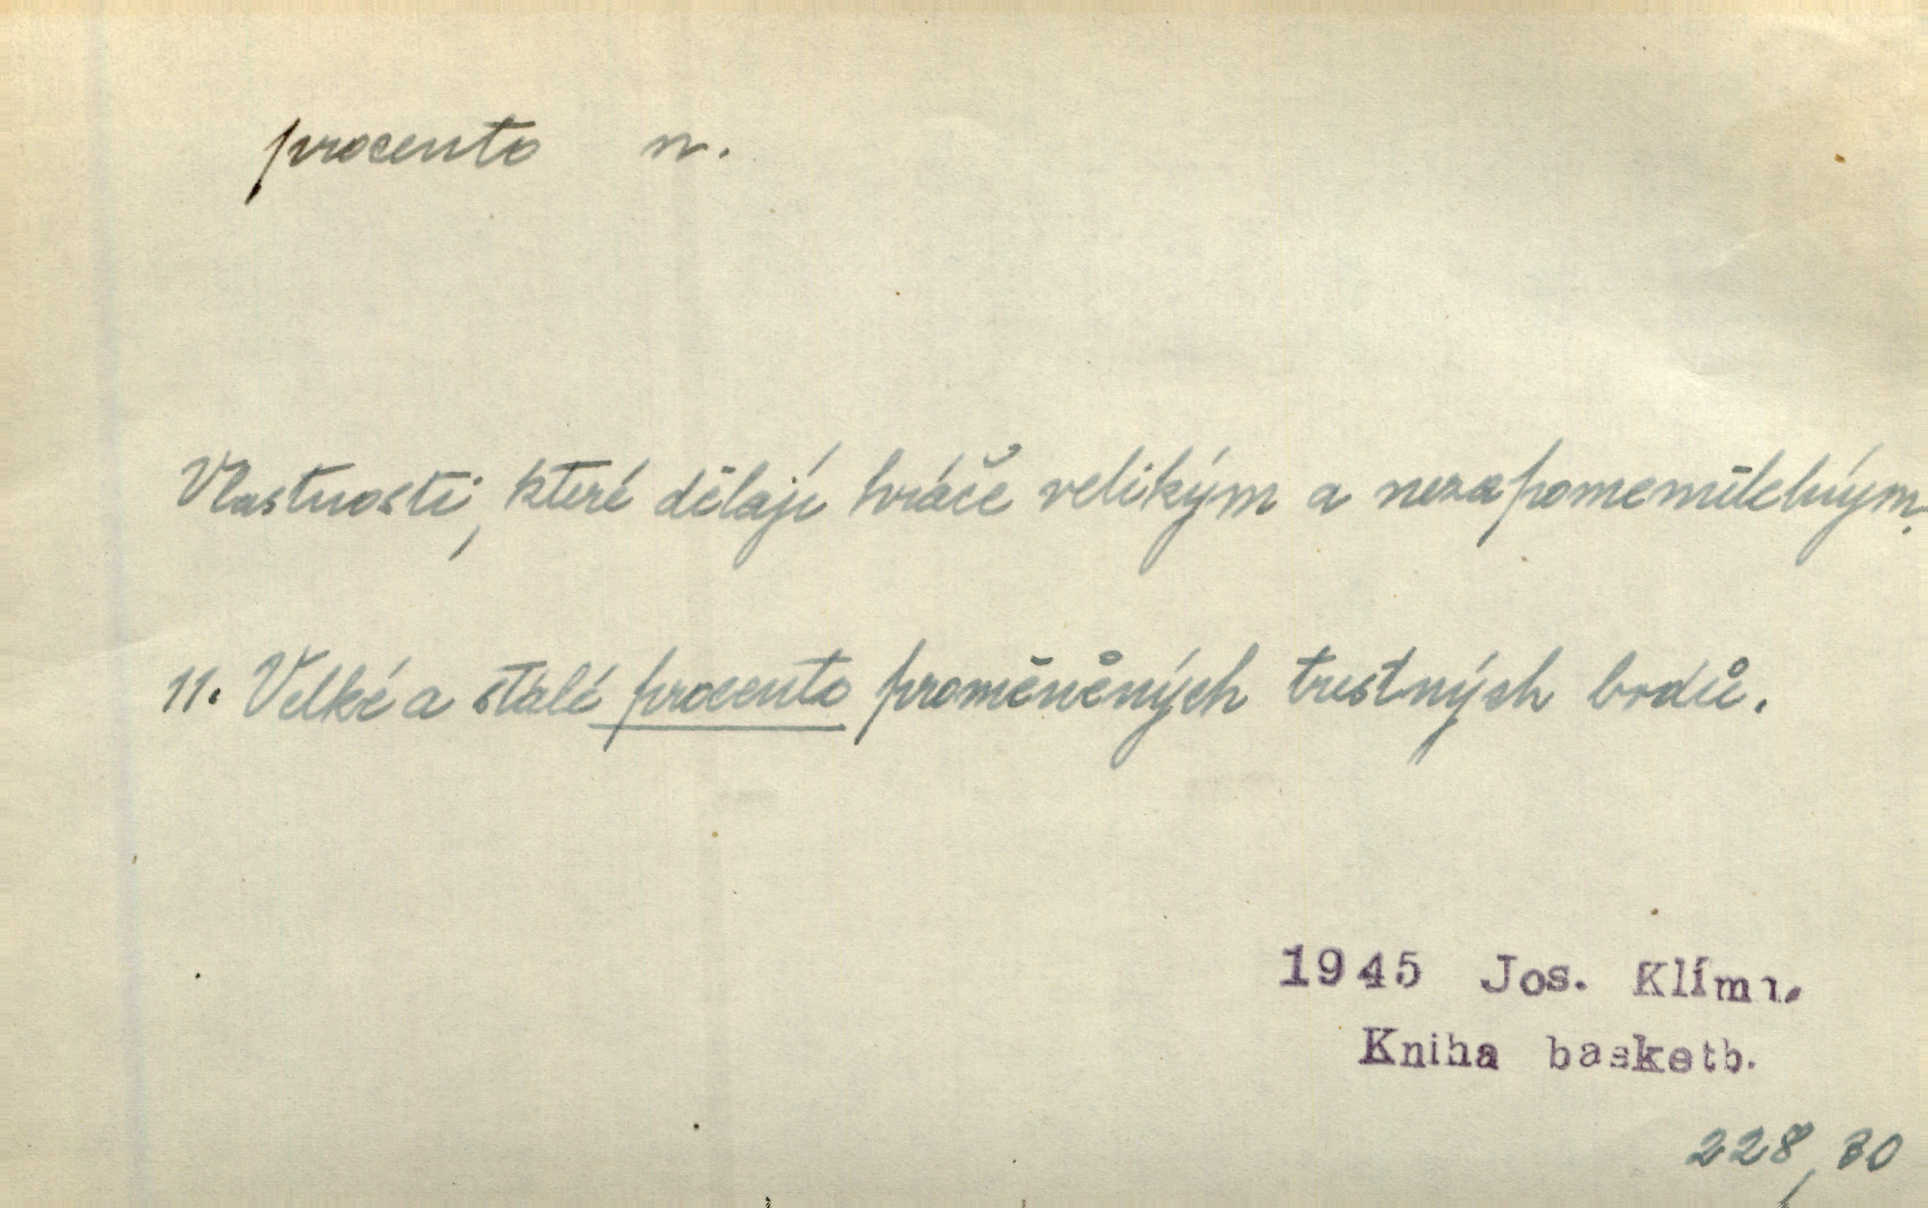 procento n.
Vlastnosti, které dělají hráče velikým a nezapomenutelným.
11. Velké a stálé procento proměněných trestných hodů.
1945 Jos. Klíma.
Kniha basketb.
228, 30